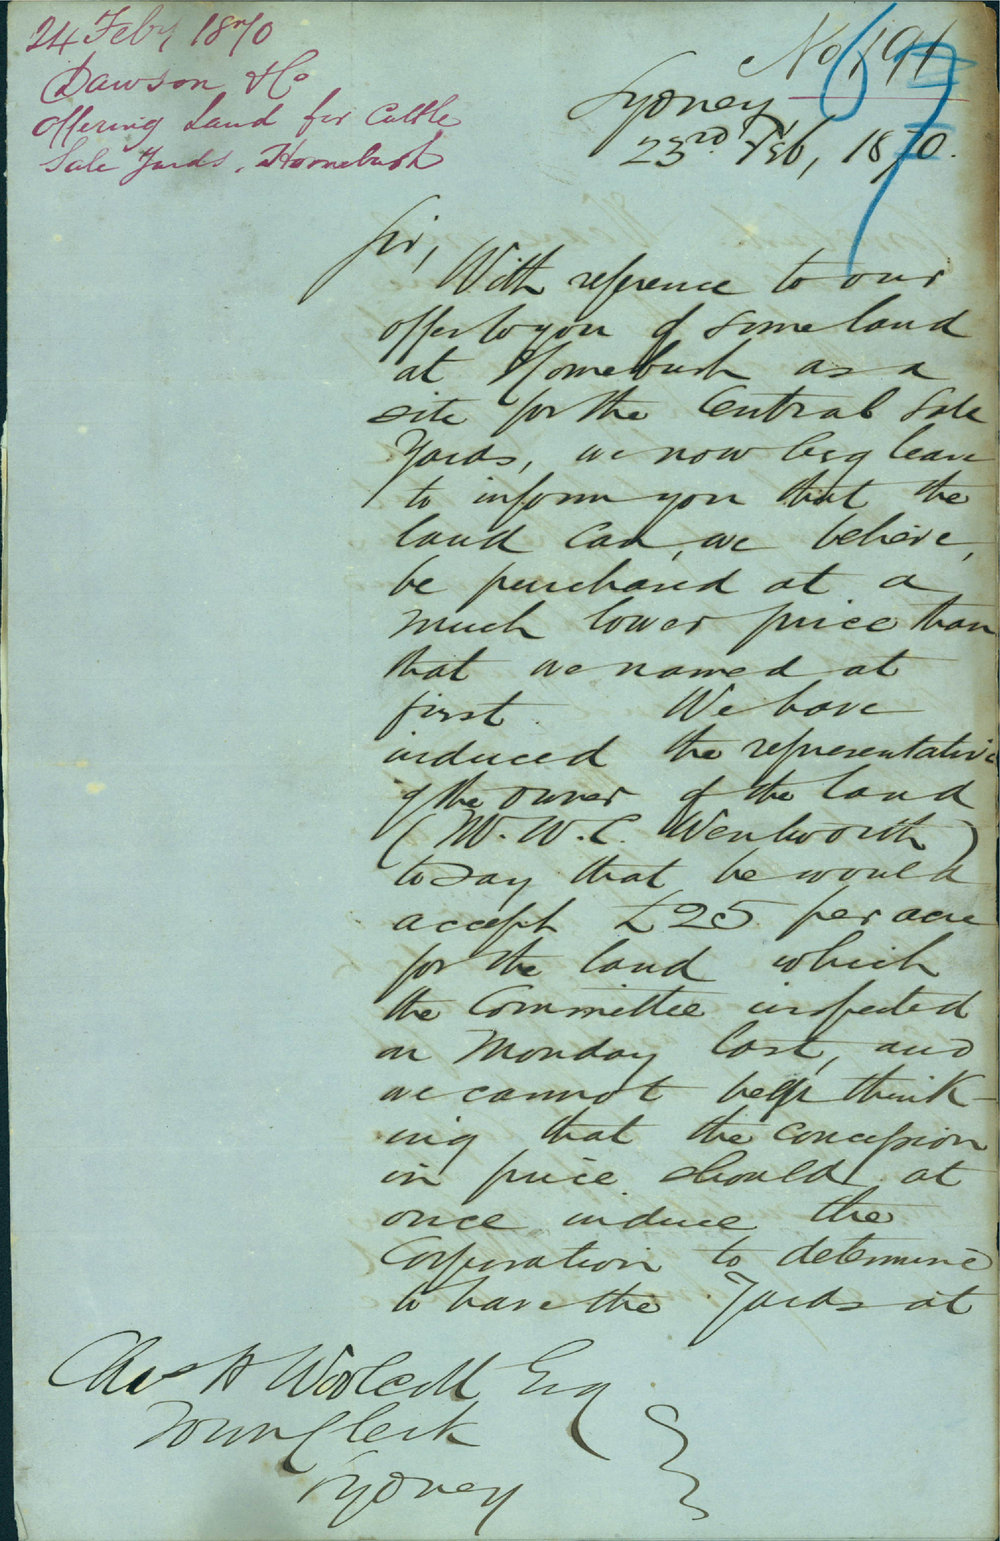 24 Feby 1870
Dawson & Co
Offering Land for Cattle
Sale Yards, Homebush
No 191
67
Sydney
23rd Feb, 1870.
Sir,
With reference to our
offer to you of some land
at Homebush as a
site for the Central Sale
Yards, we now beg leave
to inform you that the
land can, we believe,
be purchased at a
much lower price than
that we named at
first. We have
induced the representative
of the owner of the land
(Mr. W. C. Wentworth)
to say that he would
accept £25 per acre
for the land which
the Committee inspected
on Monday last, and
we cannot help think-
ing that the concession
in price should at
once induce the
Corporation to determine
to have the Yards at
Chas H Woolcott Esq
Town Clerk
Sydney